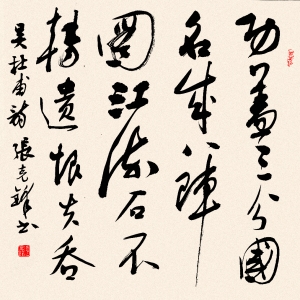 功蓋三分國
名成八陣
圖江流石不
轉遺恨失吞
吳杜甫詩張克鋒书